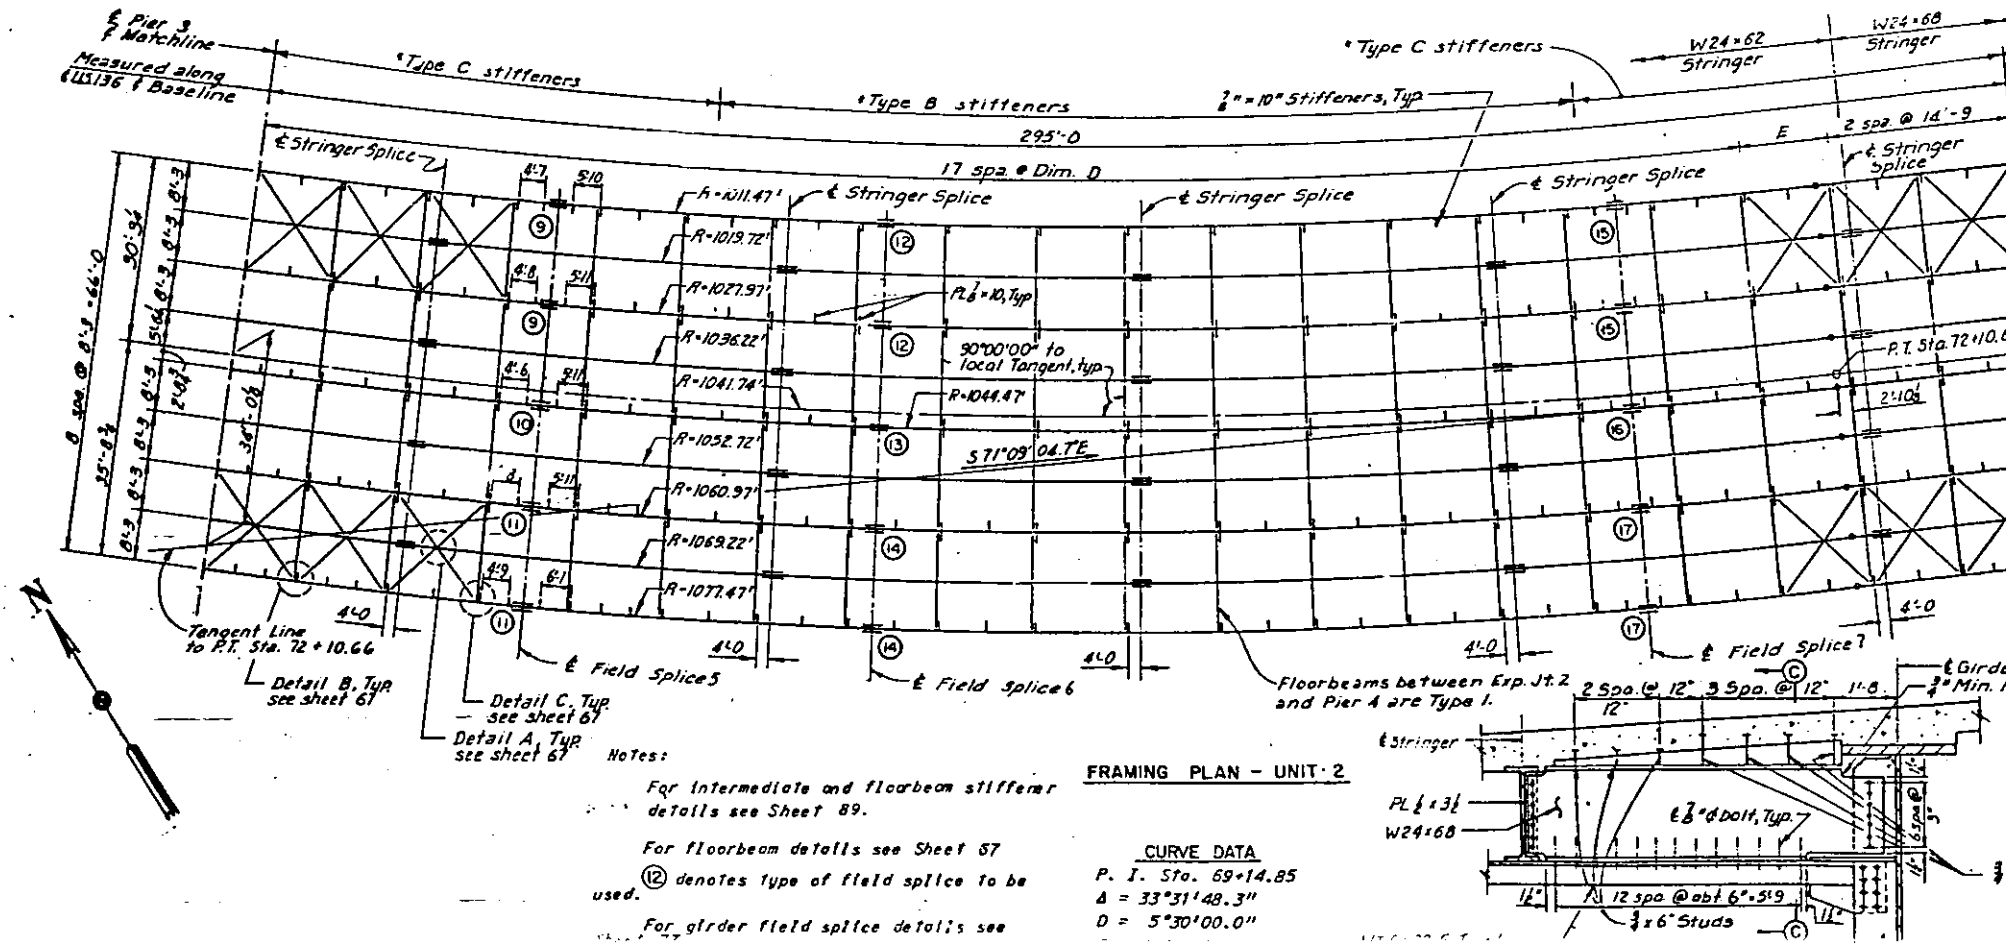 ℄ Pier 3
& Matchline
Measured along
℄ US136 & Baseline
*Type C stiffeners
*Type B stiffeners
*Type C stiffeners
W24×62
Stringer
W24×68
Stringer
⅞"×10" Stiffeners, Typ.
295'-0
17 spa. @ Dim. D
E
2 spa. @ 14'-9
℄ Stringer Splice
℄ Stringer Splice
℄ Stringer Splice
℄ Stringer Splice
℄ Stringer
Splice
8 spa. @ 8'-3 = 66'-0
8'-3
8'-3
8'-3
8'-3
8'-3
8'-3
8'-3
4'-7
5'-10
4'-8
5'-11
4'-6
5'-11
5'-11
4'-9
6'-1
R=1011.47'
R=1019.72'
R=1027.97'
R=1036.22'
R=1041.74'
R=1044.47'
R=1052.72'
R=1060.97'
R=1069.22'
R=1077.47'
PL ⅞×10, Typ.
90°00'00" to
local Tangent, typ.
S 71°09' 04.7"E
P.T. Sta. 72+10.6
9
9
10
11
11
12
12
13
14
14
15
15
16
17
17
N
Tangent Line
to P.T. Sta. 72+10.66
4'-0
4'-0
4'-0
4'-0
4'-0
Detail B, Typ.
see sheet 67
Detail C, Typ.
see sheet 67
Detail A, Typ.
see sheet 67
℄ Field Splice 5
℄ Field Splice 6
℄ Field Splice 7
Floorbeams between Exp. Jt. 2
and Pier 4 are Type 1.
Notes:
For intermediate and floorbeam stiffener
details see Sheet 89.
For floorbeam details see Sheet 67
12 denotes type of field splice to be
used.
For girder field splice details see
FRAMING PLAN - UNIT 2
CURVE DATA
P. I. Sta. 69+14.85
Δ = 33°31'48.3"
D = 5°30'00.0"
C
2 Spa. @ 12"
3 Spa. @ 12"
1'-8
12"
℄ Girde
¾" Min.
℄ Stringer
PL ½ x 3½
W24×68
℄ ⅞"φ bolt, Typ.
6 spa @
3"
1½"
12 spa @ abt 6"=5'9
1½"
¾ x 6" Studs
C